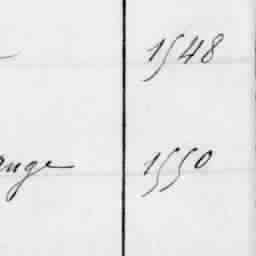 1548
ange 1550